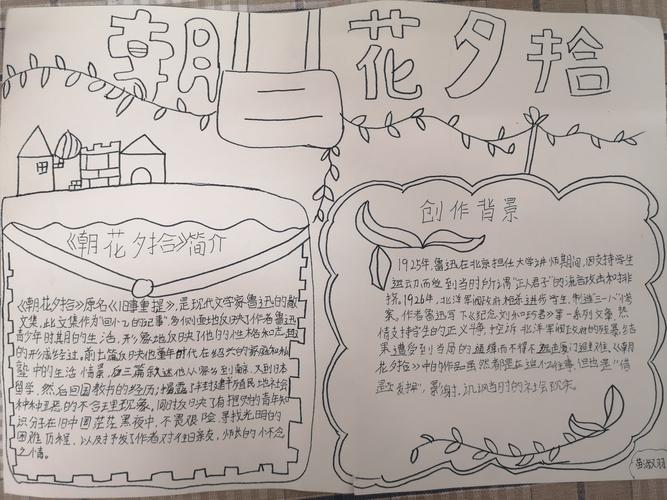 朝花夕拾
《朝花夕拾》简介
《朝花夕拾》原名《旧事重提》,是现代文学家鲁迅的散
文集,此文集作为"回忆的记事",多侧面地反映了作者鲁迅
青少年时期的生活,形象地反映了他的性格和志趣
的形成经过。前七篇反映他童年时代在绍兴的家庭和私
塾中的生活情景,后三篇叙述他从家乡到南京,又到日本
留学,然后回国教书的经历;揭露了半封建半殖民地社会
种种丑恶的不合理现象,同时反映了有抱负的青年知
识分子在旧中国茫茫黑夜中,不畏艰险,寻找光明的
困难历程,以及抒发了作者对往日亲友,师长的怀念
之情。
创作背景
1925年,鲁迅在北京担任大学讲师期间,因支持学生
运动而受到当时所谓"正人君子"的流言攻击和排
挤。1926年,北洋军阀政府枪杀进步学生,制造三一八惨
案,作者鲁迅写下《纪念刘和珍君》等一系列文章,热
情支持学生的正义斗争,控诉北洋军阀政府的残暴,结
果遭受到当局的通缉而不得不远走厦门避难。《朝
花夕拾》中的作品虽然都是在追忆往事,但也是"借
题发挥",影射,讥讽当时的社会现实。
黄淑羽